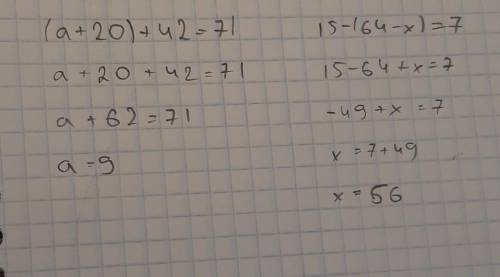 (a+20)+42=71
a+20+42=71
a+62=71
a=9
15-(64-x)=7
15-64+x=7
-49+x=7
x=7+49
x=56